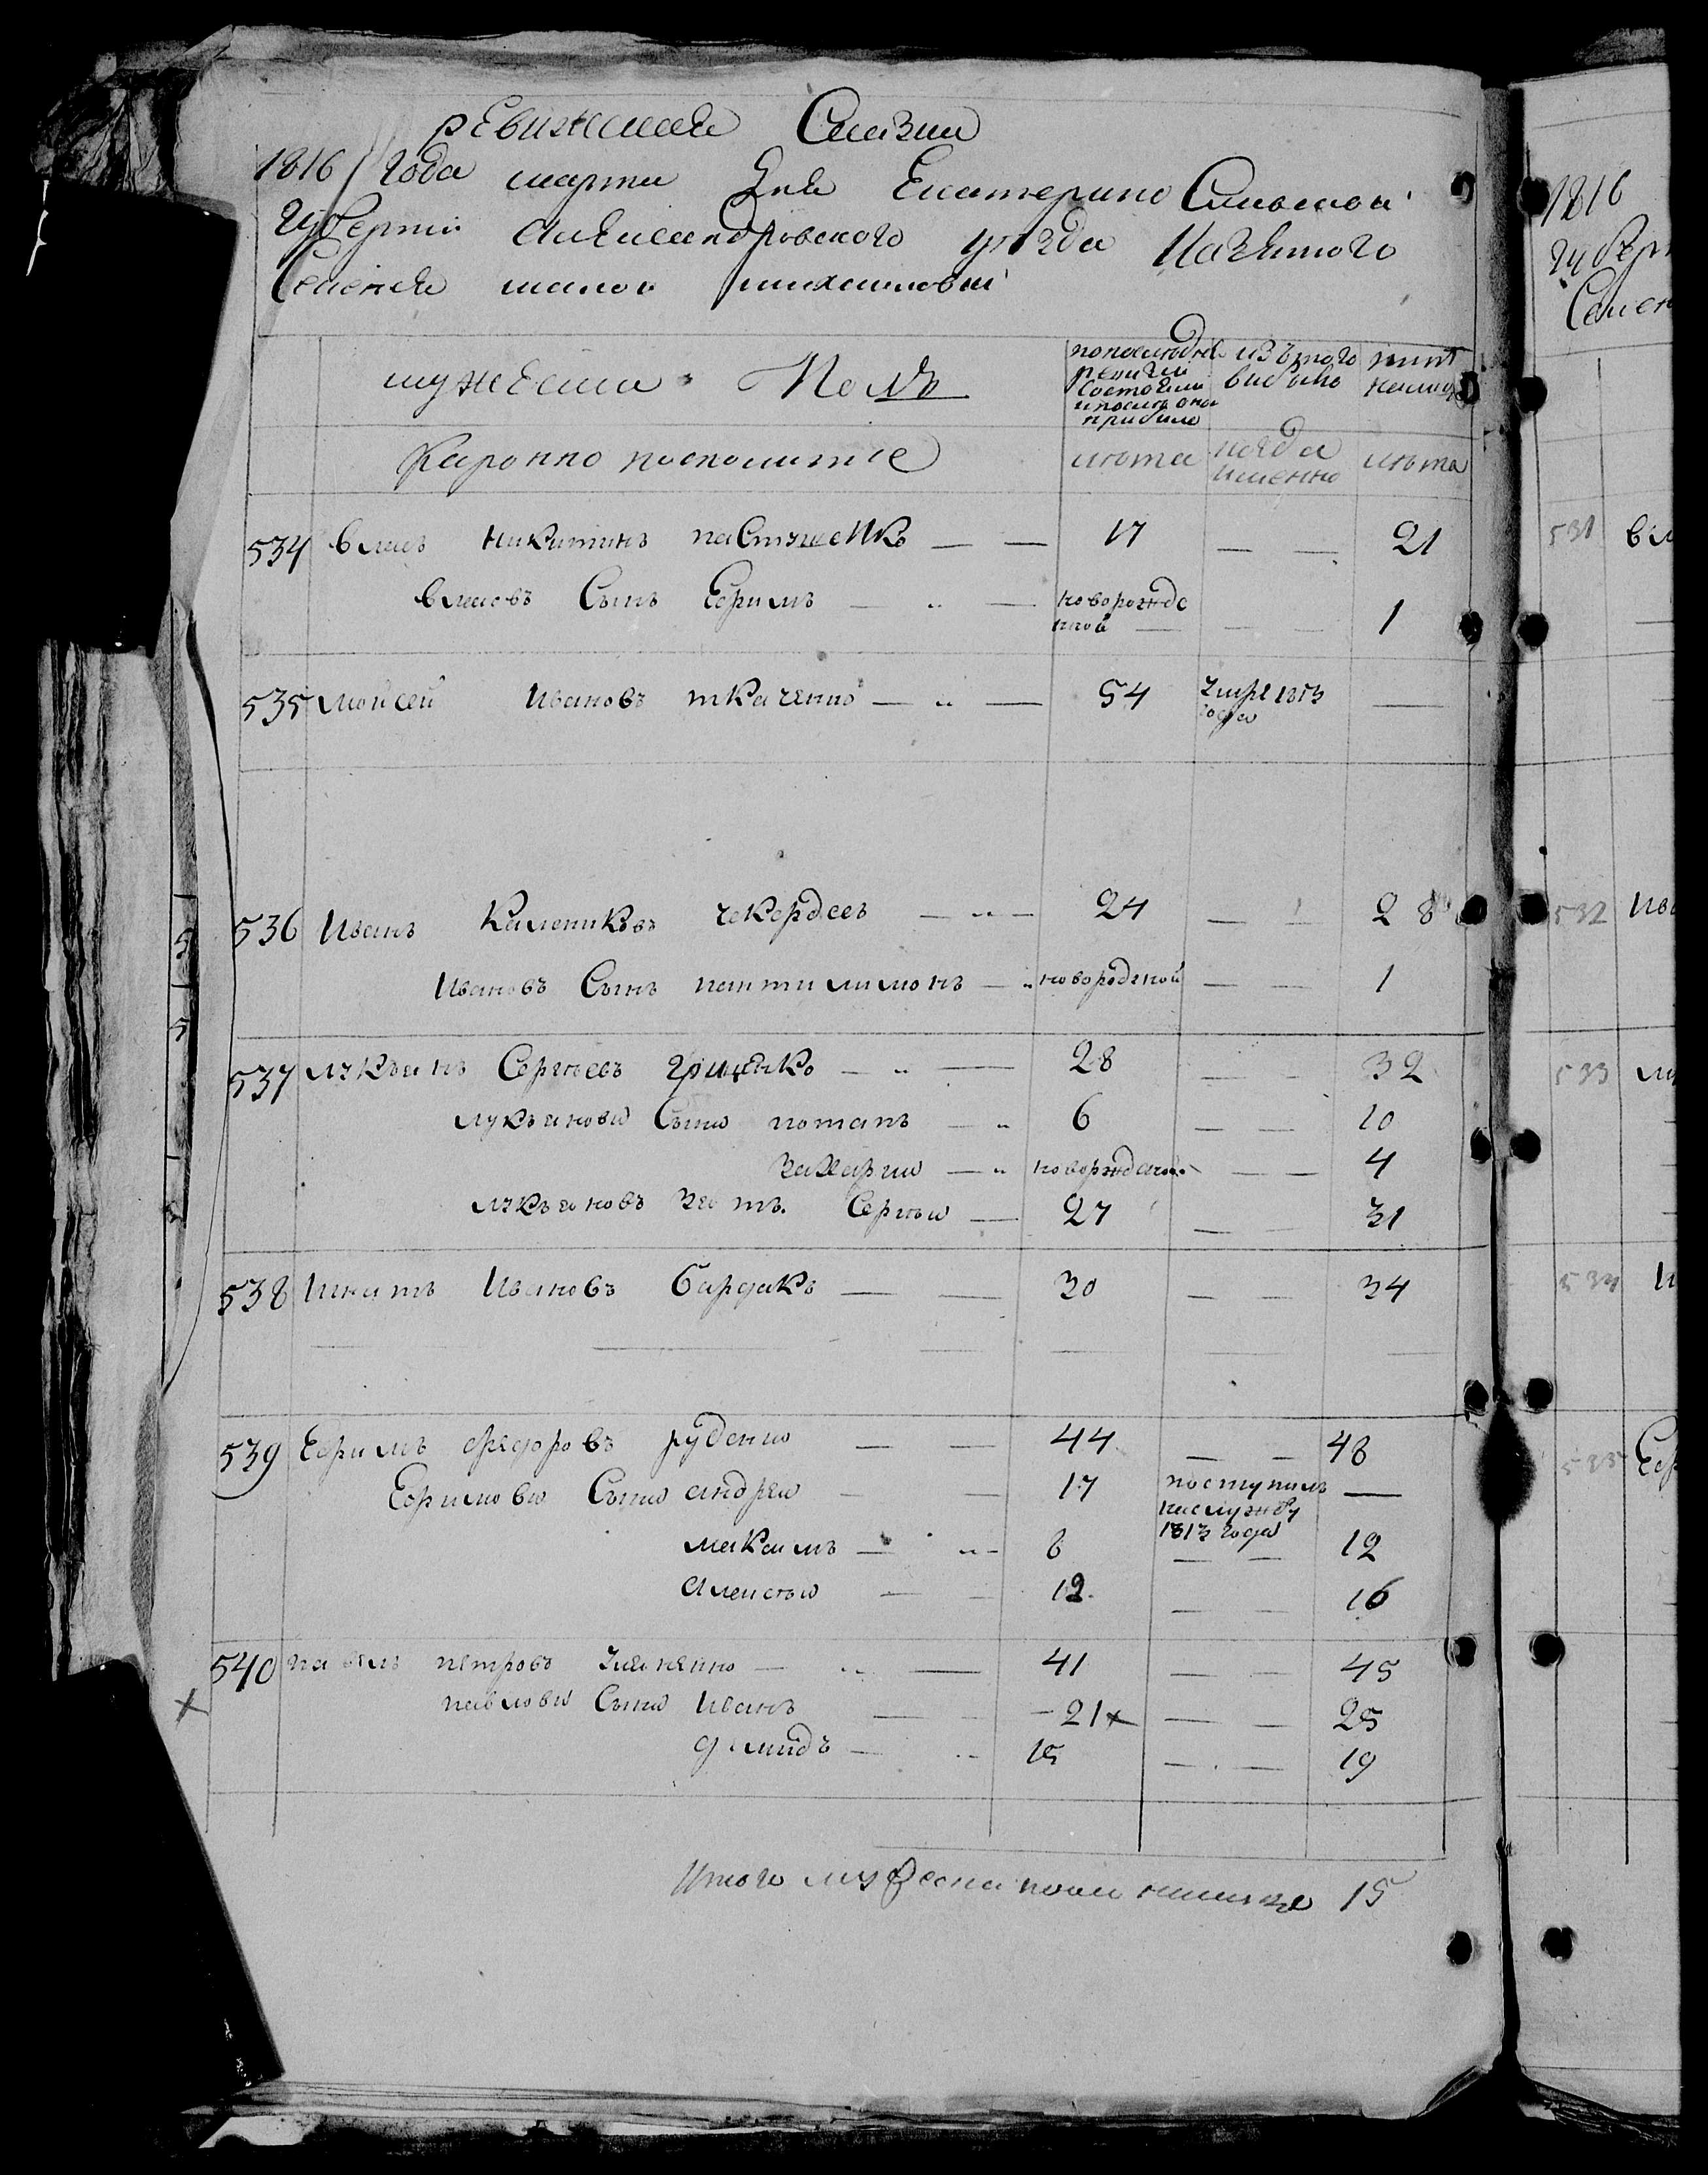 ревижская Сказка
1816 года марта дня Екатерино Славской
Губерніи Александровского уезда Казенного
Селения малой михаиловки
мужеска Полъ
по последней ревизии Состояло и после оной прибыло
изъ того выбыло
ныне налицо
Каронно посполитые
лета
когда именно
лета
534 власъ Никитинъ пастушенко — — 17 — — 21
власовъ Сынъ Ефимъ — " — новорожде нной — — — 1
535 Моисей Ивановъ ткаченко — " — 54 умре 1813 года —
536 Иванъ Калениковъ чекердесъ — " — 24 — — 28
Ивановъ Сынъ пантилимонъ — " новорожденой — — 1
537 лукъянъ Сергеевъ гриценко — " — 28 — — 32
лукъяновы Сыны потапъ — " 6 — — 10
Захарии — " новорожденой — — 4
лукъяновъ зять Сергеи — 27 — — 31
538 Игнатъ Ивановъ бардакъ — — 30 — — 34
539 Ефимъ федоровъ руденко — — 44 — — 48
Ефимовы Сыны андреи — — 17 поступилъ на службу 1813 года —
максимъ — " — 8 — — 12
алексеи — — 12 — — 16
540 павелъ петровъ — " — 41 — — 45
павловы Сыны Иванъ — — 21 × — — 25
демидъ — " 15 — — 19
×
Итого мужеска пола налицо 15
1816
губерн
Селен
531 вл
532 Ива
533
534 И
535 Еф